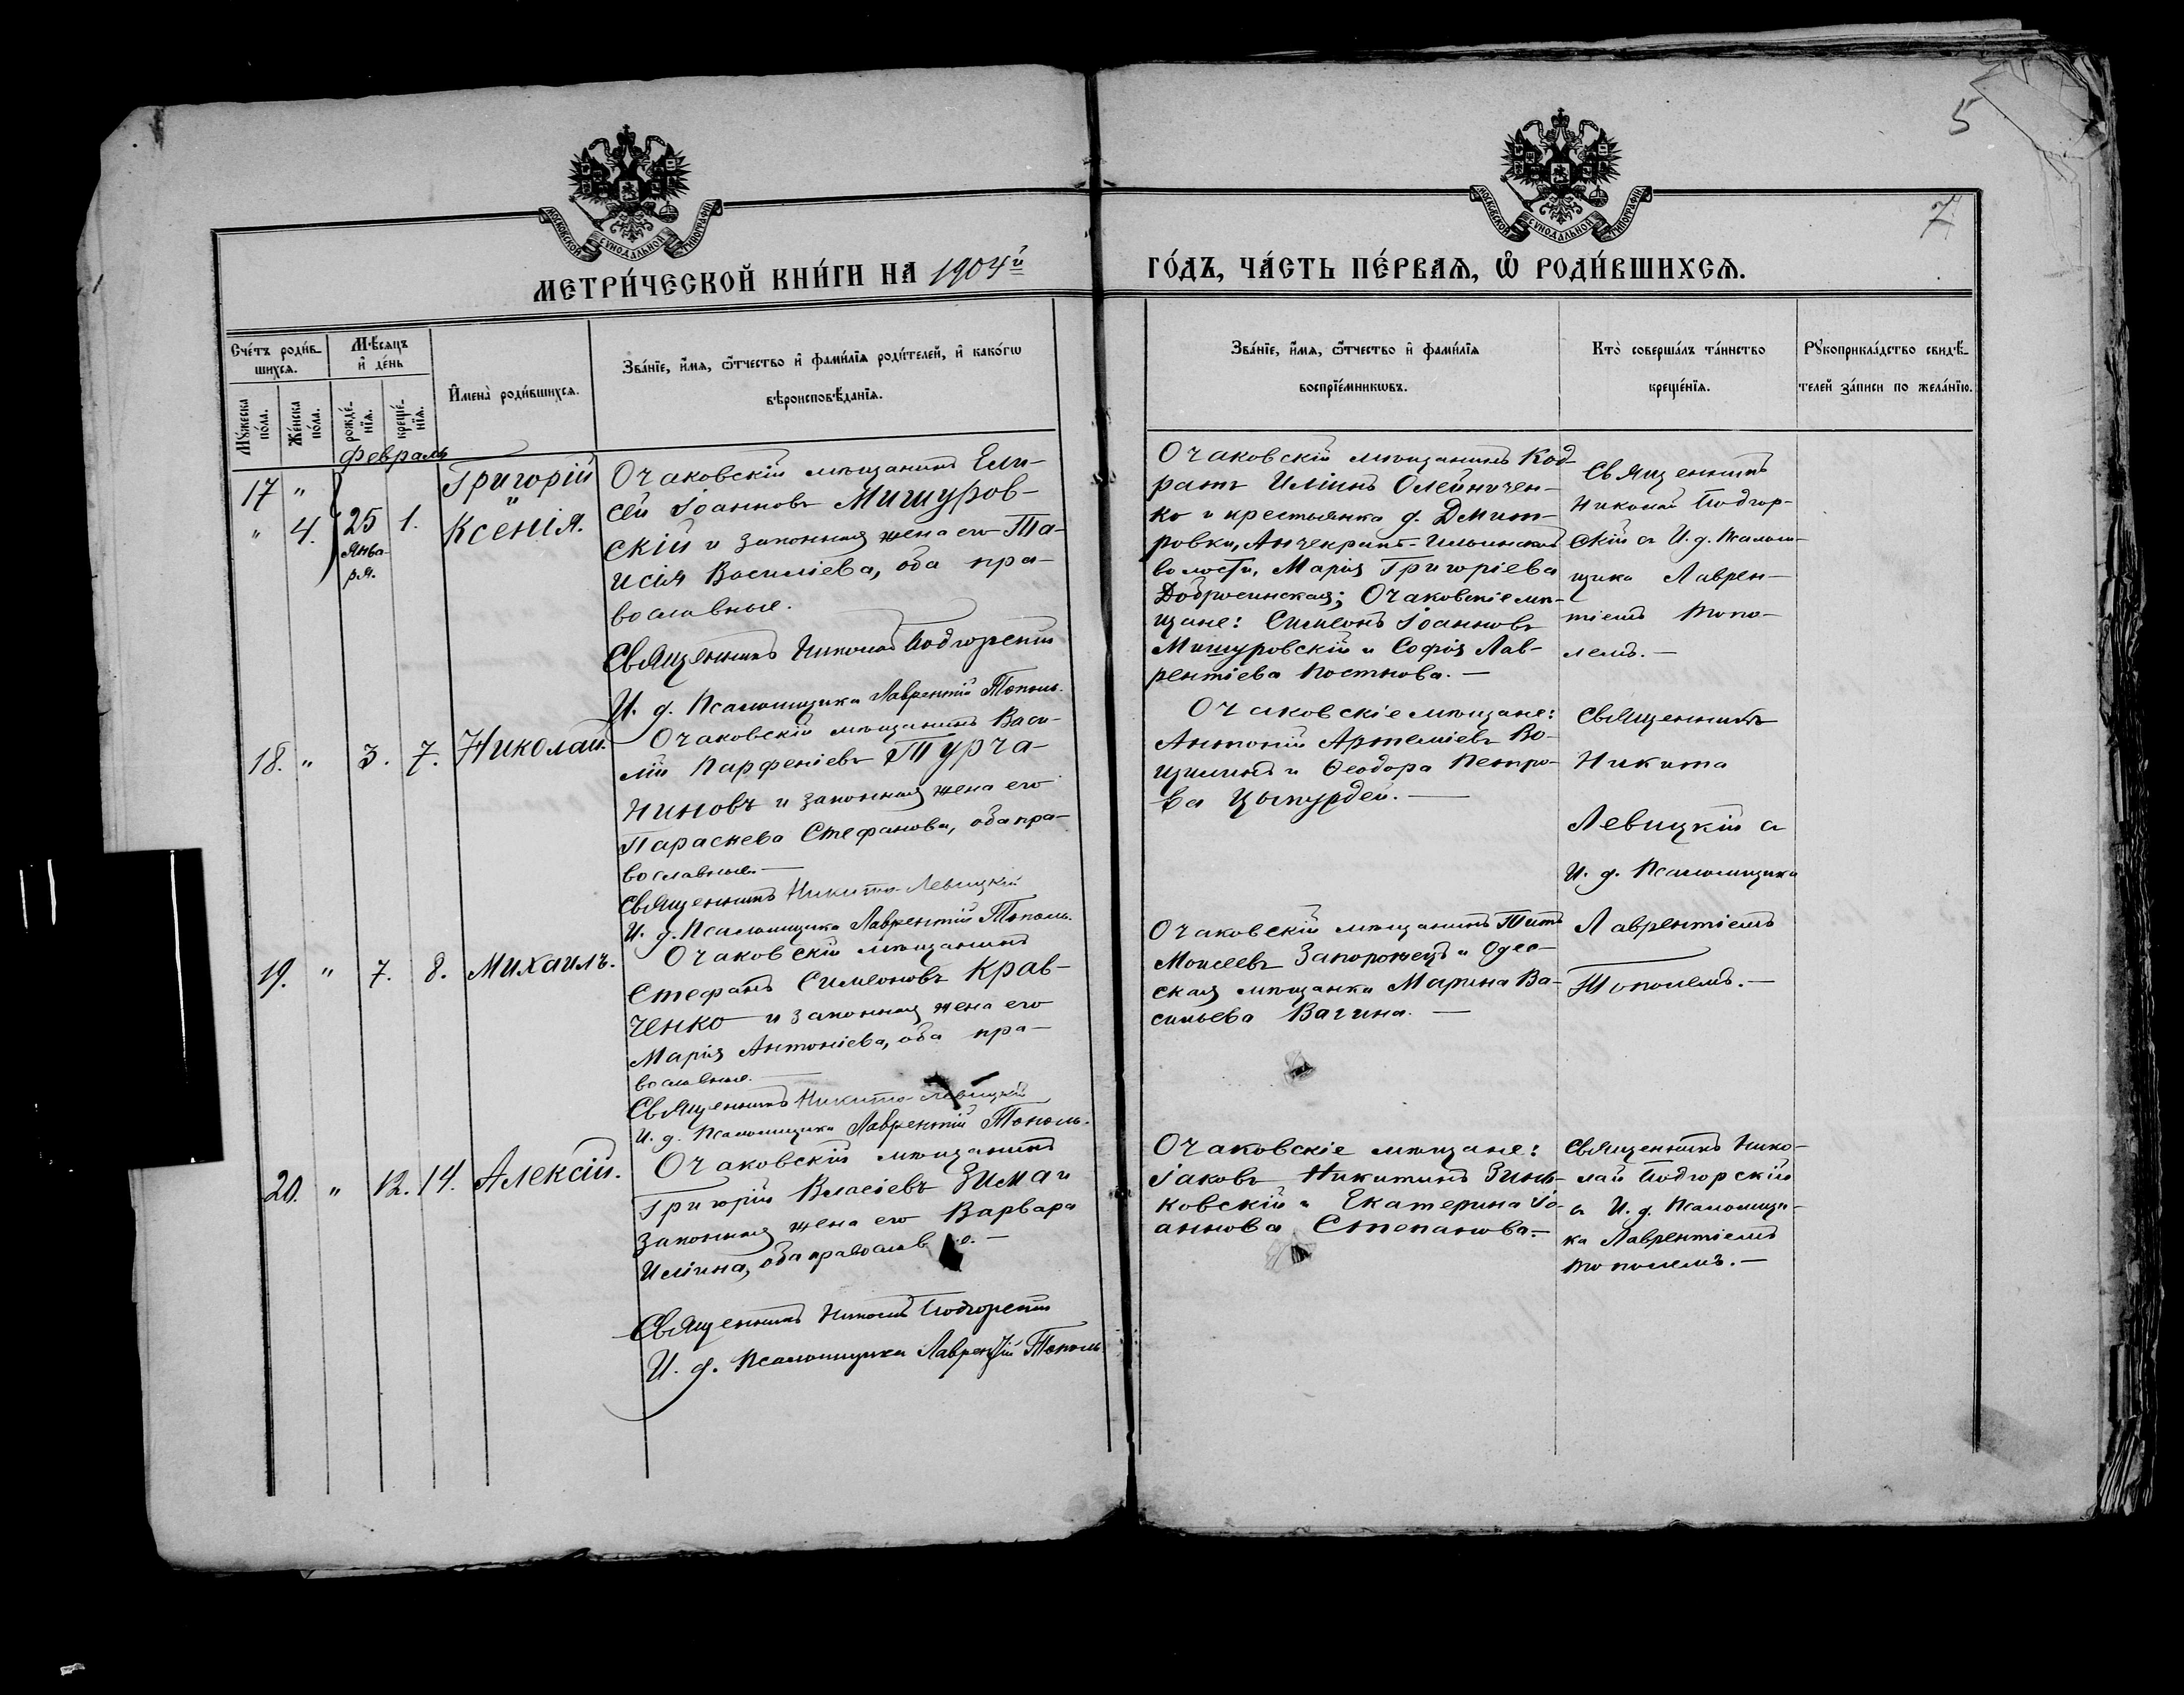 5
7
МОСКОВСКОЙ СУНОДАЛЬНОЙ ТИПОГРАФІИ
МОСКОВСКОЙ СУНОДАЛЬНОЙ ТИПОГРАФІИ
МЕТРИ́ЧЕСКОЙ КНИ́ГИ НА 1904й
ГО́ДЪ, ЧА́СТЬ ПЕ́РВАѦ, Ѡ҆ РОДИ́ВШИХСѦ.
Сче́тъ роди́в-
шихсѧ.
Мѣ́сѧцъ
и҆ де́нь
Мꙋ́жеска по́ла.
Же́нска по́ла.
рожде́-нїѧ.
креще́-нїѧ.
И҆мена̀ роди́вшихсѧ.
Зва́нїе, и҆́мѧ, ѻ҆́тчество и҆ фами́лїѧ роди́телей, и҆ како́гѡ
вѣроисповѣ́данїѧ.
Зва́нїе, и҆́мѧ, ѻ҆́тчество и҆ фами́лїѧ
воспрїе́мникѡвъ.
Кто̀ соверша́лъ та́инство
креще́нїѧ.
Рꙋкоприкла́дство свидѣ́-
телей за́писи по жела́нїю.
Февраль
17 " Григорій
" 4. 25 1. Ксенія.
Янва-
ря.
Очаковскій мѣщанинъ Ели-
сей Іоанновъ Мишуров-
скій и законная жена его Та-
исія Василіева, оба пра-
вославные.
Священникъ Николай Подгорскій
И. д. Псаломщика Лаврентій Тополь.
Очаковскій мѣщанинъ Код-
ратъ Иліинъ Олейничен-
ко и крестьянка д. Дмит-
ровки, Анчекракъ-Ильинской
волости, Марія Григоріева
Добросинская; Очаковскіе мѣ-
щане: Симеонъ Іоанновъ
Мишуровскій и Софія Лав-
рентіева Постнова.—
Священникъ
Николай Подгор-
скій съ И. д. Псалом-
щика Лаврен-
тіемъ Топо-
лемъ.—
18. " 3. 7. Николай.
Очаковскій мѣщанинъ Васи-
лій Парфеніевъ Турча-
ниновъ и законная жена его
Параскева Стефанова, оба пра-
вославные.—
Священникъ Никита Левицкій
И. д. Псаломщика Лаврентій Тополь.
Очаковскіе мѣщане:
Антоній Артеміевъ Во-
щилинъ и Ѳеодора Петро-
ва Цыпурдей.—
Священникъ
Никита
Левицкій съ
И. д. Псаломщика
Лаврентіемъ
Тополемъ.—
19. " 7. 8. Михаилъ.
Очаковскій мѣщанинъ
Стефанъ Симеоновъ Крав-
ченко и законная жена его
Марія Антоніева, оба пра-
вославные.—
Священникъ Никита Левицкій
И. д. Псаломщика Лаврентій Тополь.
Очаковскій мѣщанинъ Титъ
Моисеевъ Запорожецъ и Одес-
ская мѣщанка Марина Ва-
сильева Вагина.—
20. " 12. 14. Алексій.
Очаковскій мѣщанинъ
Григорій Власіевъ Зима и
законная жена его Варвара
Иліина, оба православ
Священникъ Николай Подгорскій
И. д. Псаломщика Лаврентій Тополь
Очаковскіе мѣщане:
Іаковъ Никитинъ Зинь-
ковскій и Екатерина Іо-
аннова Степанова.—
Священникъ Нико-
лай Подгорскій
съ И. д. Псаломщи-
ка Лаврентіемъ
Тополемъ.—